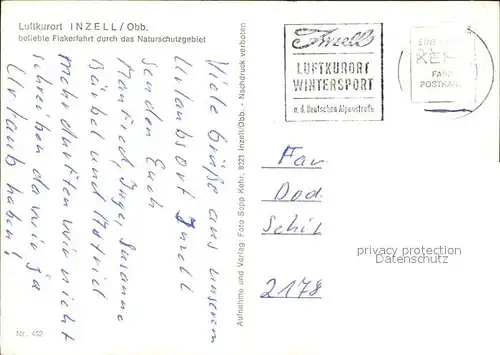 Luftkurort INZELL/Obb.
beliebte Fiakerfahrt durch das Naturschutzgebiet
Viele Grüße aus unserem
Urlaubsort Inzell
senden Euch
Manfred, Inge, Susanne
Bärbel und Astrid
Mehr durften wir nicht
schreiben da wir ja
Urlaub haben!
Nr. 452
Aufnahme und Verlag: Foto Sepp Kehr, 8221 Inzell/Obb. - Nachdruck verboten
Inzell
LUFTKURORT
WINTERSPORT
a. d. Deutschen Alpenstraße
POSTKARTE
Fam
Dod
Schil
2178
privacy protection
Datenschutz